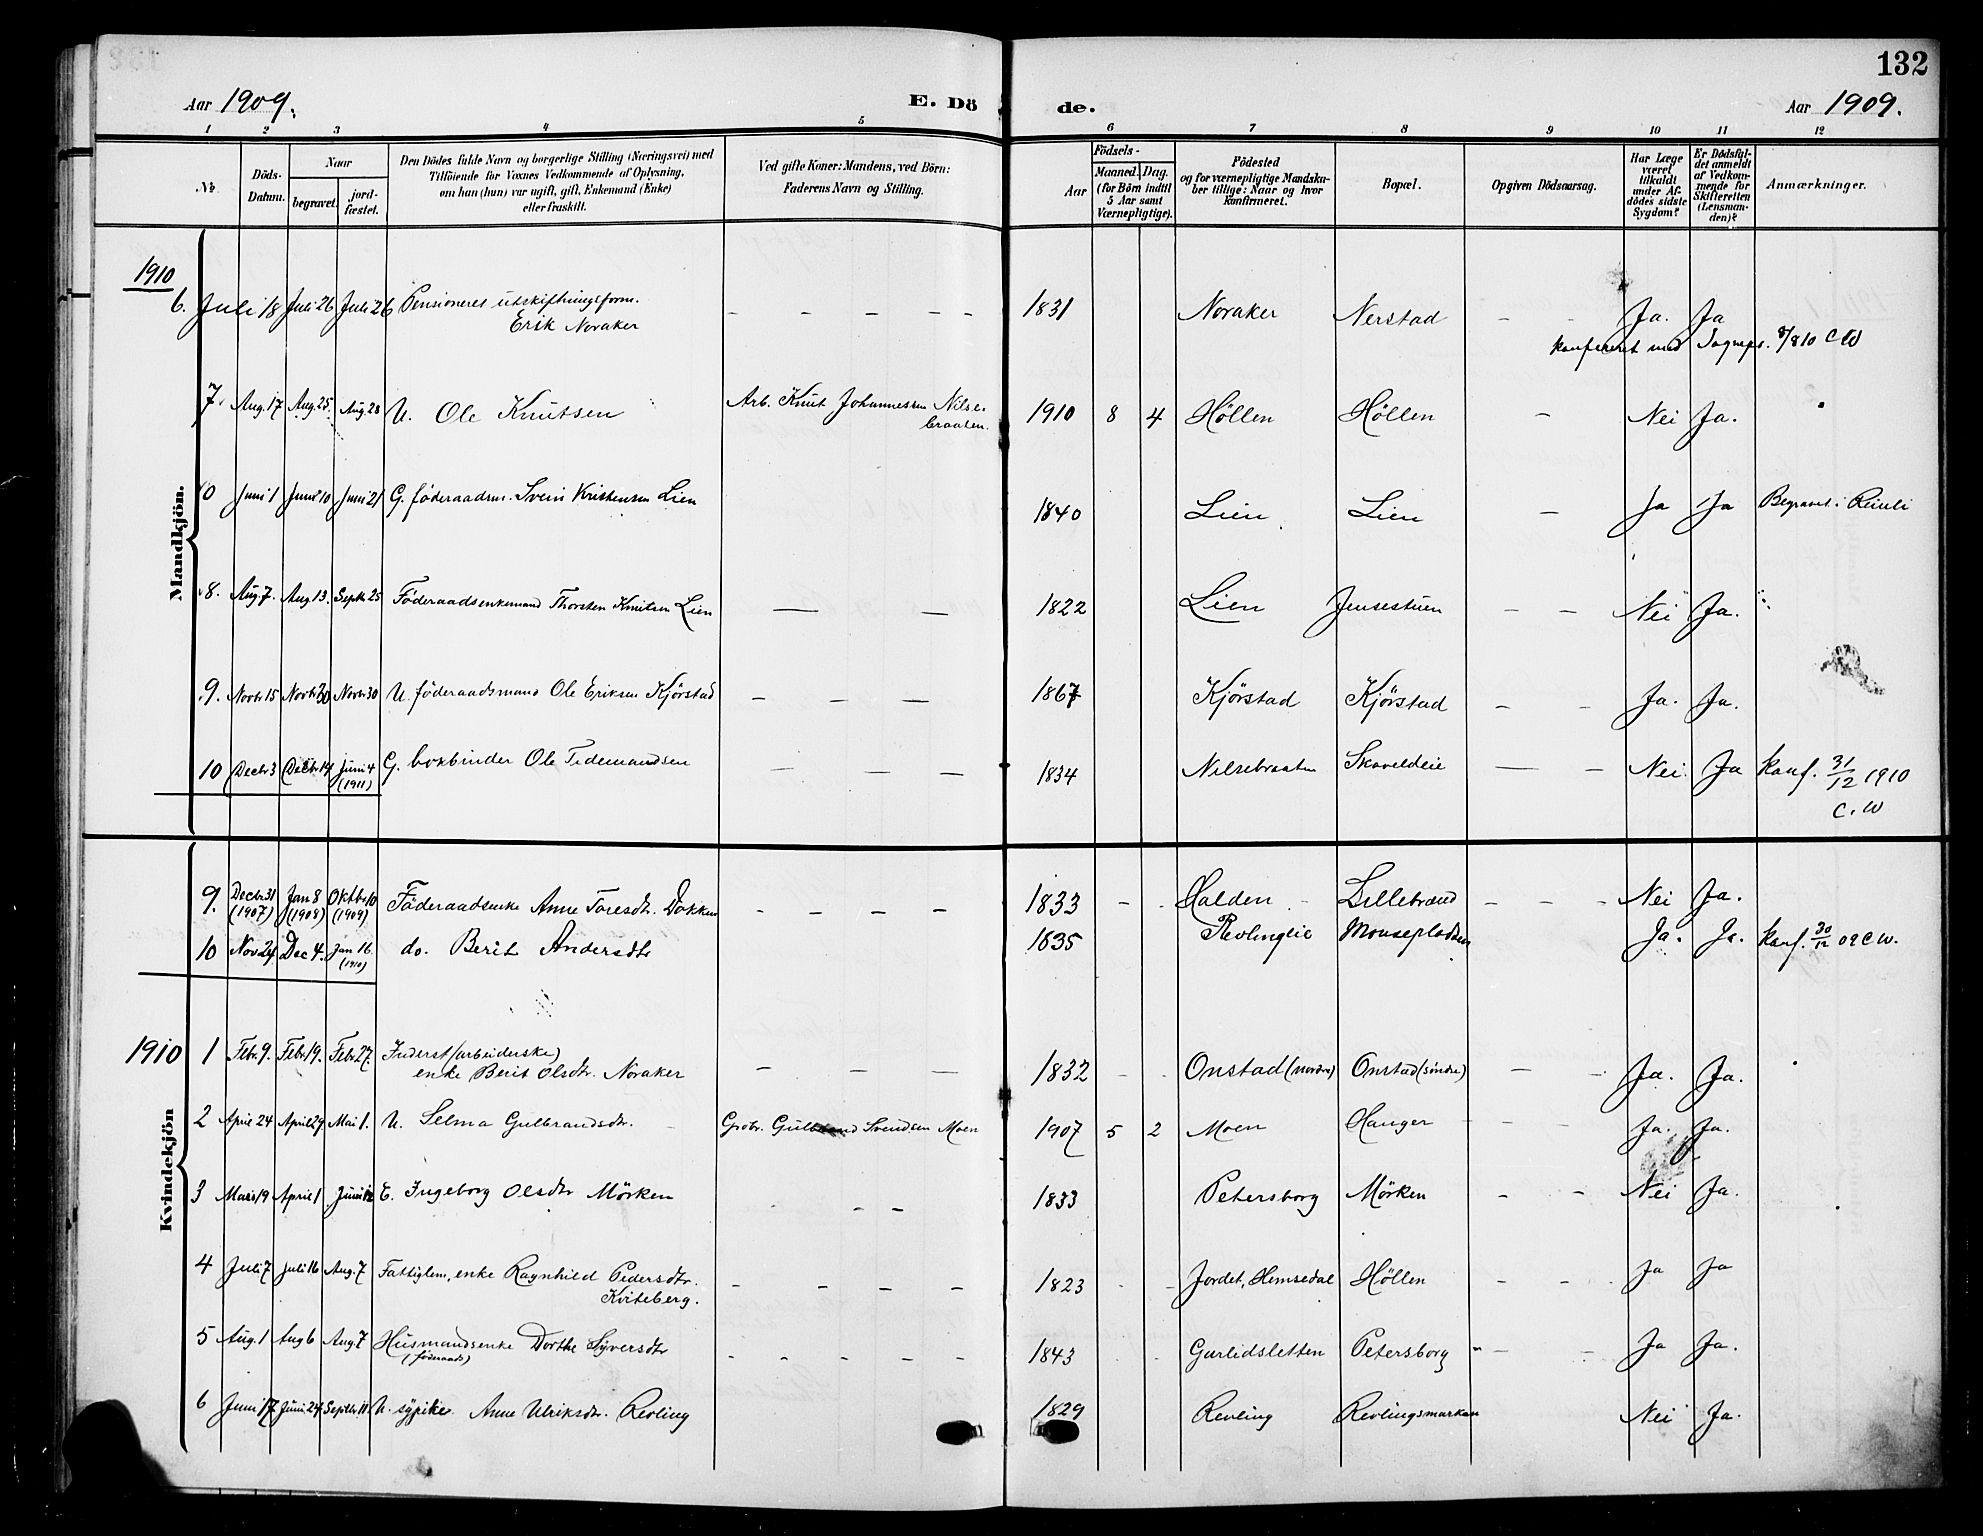 132
Aar 1909. E. Dö de. Aar 1909.
1 2 3 4 5 6 7 8 9 10 11 12
No.
Döds-Datum.
Naar
begravet.
jord-fæstet.
Den Dödes fulde Navn og borgerlige Stilling (Næringsvei) med
Tilföiende for Voxnes Vedkommende af Oplysning,
om han (hun) var ugift, gift, Enkemand (Enke)
eller fraskilt.
Ved gifte Koner: Mandens, ved Börn:
Faderens Navn og Stilling.
Födsels-
Aar
Maaned. Dag.
(for Börn indtil
5 Aar samt
Værnepligtige).
Födested
og for værnepligtige Mandska-
ber tillige: Naar og hvor
konfirmeret.
Bopæl.
Opgiven Dödsaarsag.
Har Læge
været
tilkaldt
under Af-
dödes sidste
Sygdom?
Er Dödsfal-
det anmeldt
af Vedkom-
mende for
Skifteretten
(Lensman-
den)?
Anmærkninger.
Mandkjön.
1910
6. Juli 18 Juli 26 Juli 26 Pensioneret utskiftningsform. Erik Noraker – – – – – 1831 Noraker Nerstad – – Ja. Ja
konfereret med Sogneps. 8/8 10 CW
7. Aug. 17 Aug. 25. Aug. 28 U. Ole Knutsen Arb. Knut Johannessen Nilse-braaten. 1910 8 4 Höllen Höllen – Nei Ja.
Juni 1 Juni 10 Juni 21 G. föderaadsm. Svein Kristensen Lien 1840 Lien Lien – Ja Ja Begravet i Reinli
8. Aug. 7. Aug. 13. Septb 25 Föderaadsenkemand Thorsten Knutsen Lien – – 1822 Lien Jensestuen – – Nei Ja.
9. Novbr 15 Novbr 30 Novbr 30 U. föderaadsmand Ole Eriksen Kjörstad – – – 1867 Kjörstad Kjörstad – – Ja. Ja.
10 Decbr 3 Decbr 14 Juni 4 (1911) G. bokbinder Ole Tidemandsen – – – 1834 Nilsebraaten Skoveldeie – – Nei. Ja konf. 31/12 1910
C. W
Kvindekjön
9. Decbr 31 (1907) Jan 8 (1908) Oktbr 10 (1909) Föderaadsenke Anne Toresdtr. Dokken – – – – 1833 – – Halden – Lillebrænd – – – Nei Ja.
10 Nov 24 Dec 4. Jan 16. (1910) do. Berit Andersdtr 1835 Revlingeie Monsepladsen Ja. Ja. konf. 30/12 09 C W.
1910 1 Febr. 9. Febr. 19. Febr. 27. Inderst (arbeiderske)
enke Berit Olsdtr. Noraker – – – 1832 – – Onstad (nordre) Onstad (söndre) – – Ja. Ja.
2 April 24 April 29 Mai 1. U. Selma Gulbrandsdtr. Grdbr. Gulbrand Svendsen Moen 1907 5 2 Moen Hanger – – – Ja. Ja.
3 Mars 19 April 1 Juni 12 E. Ingeborg Olsdtr Mörken – – – 1833 Petersborg Mörken – – Nei Ja.
4 Juli 7 Juli 16 Aug. 7 Fattiglem, enke Ragnhild Pedersdtr.
Kviteberg. – – – – 1823 – – Jordet, Hemsedal Höllen – – Ja Ja
5 Aug. 1 Aug 6 Aug. 7 Husmandsenke Dorthe Syversdtr
(föderaads) – – – – – 1843 Garlidsletten Petersborg – – Ja Ja.
6 Juni 17 Juni 24 Septbr 11. U. sypike Anne Ulriksdtr. Revling 1829 Revling Revlingsmarken Nei Ja.